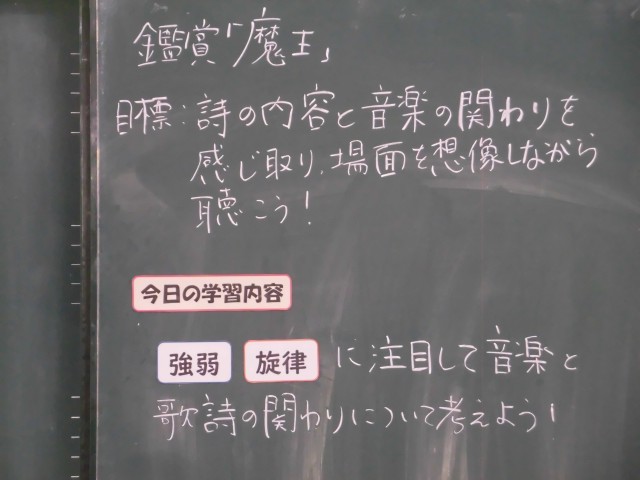 鑑賞「魔王」
目標:詩の内容と音楽の関わりを
感じ取り、場面を想像しながら
聴こう!
今日の学習内容
強弱 旋律 に注目して音楽と
歌詩の関わりについて考えよう!